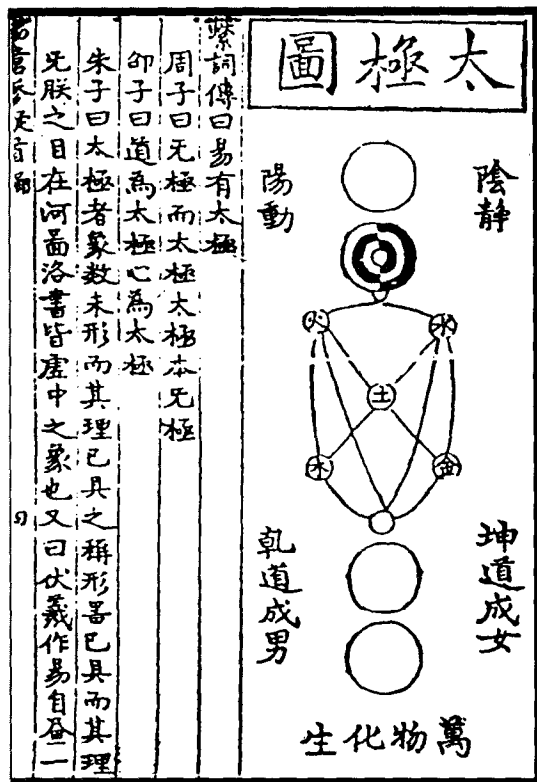 太極圖
陰静
陽動
水
火
土
金
木
坤道成女
乹道成男
萬物化生
繫詞傳曰易有太極
周子曰无極而太極太極本无極
邵子曰道為太極心為太極
朱子曰太極者象数未形而其理已具之稱形噐已具而其理
无朕之目在河啚洛書皆虛中之象也又曰伏羲作易自畫一